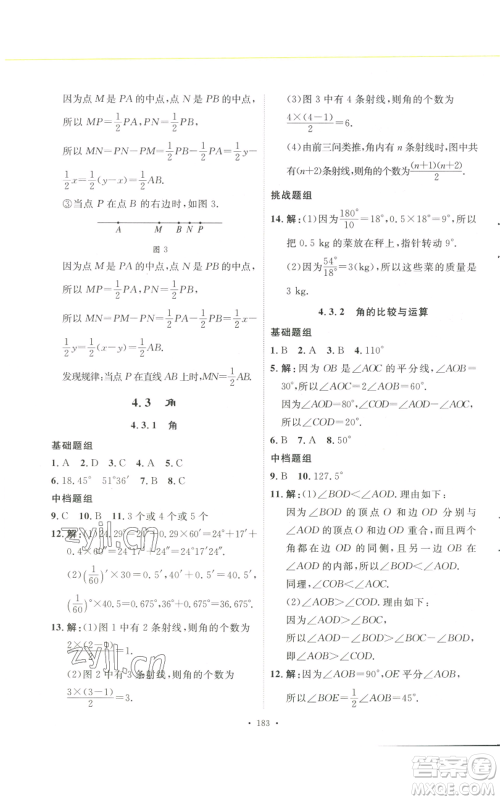 因为点 M 是 PA 的中点，点 N 是 PB 的中点，
所以 MP=1/2PA，PN=1/2PB.
所以 MN=PN-MP=1/2PB-1/2PA=1/2y-
1/2x=1/2(y-x)=1/2AB.
③当点 P 在点 B 的右边时，如图 3.
A M B N P
图 3
因为点 M 是 PA 的中点，点 N 是 PB 的中点，
所以 MP=1/2PA，PN=1/2PB.
所以 MN=PM-PN=1/2PA-1/2PB=1/2x-
1/2y=1/2(x-y)=1/2AB.
发现规律：当点 P 在直线 AB 上时，MN=1/2AB.
4.3 角
4.3.1 角
基础题组
1. A 2. D 3. B 4. B 5. C
6. 18.45° 51°36′ 7. B 8. C
中档题组
9. C 10. B 11. 3 个或 4 个或 5 个
12. 解：(1)24.29°=24°+0.29×60′=24°+17′+
0.4×60″=24°17′+24″=24°17′24″.
(2)(1/60)′×30=0.5′，36°40′+0.5′=36°40.5′，
(1/60)°×40.5=0.675°，36°+0.675°=36.675°.
13. 解：(1)图 1 中有 2 条射线，则角的个数为
2×(2-1)/2=1.
(2)图 2 中有 3 条射线，则角的个数为
3×(3-1)/2=3.
(3)图 3 中有 4 条射线，则角的个数为
4×(4-1)/2=6.
(4)由前三问类推，角内有 n 条射线时，图中共
有(n+2)条射线，则角的个数为(n+1)(n+2)/2.
挑战题组
14. 解：(1)因为180°/10=18°，0.5×18°=9°，所以
把 0.5 kg 的菜放在秤上，指针转动 9°.
(2)因为54°/18°=3(kg)，所以这些菜的质量是
3 kg.
4.3.2 角的比较与运算
基础题组
1. B 2. A 3. B 4. 110°
5. 解：因为 OB 是∠AOC 的平分线，∠AOB=
30°，所以∠AOC=2∠AOB=60°.
因为∠AOD=80°，∠AOC=60°，
所以∠COD=∠AOD-∠AOC=20°.
6. B 7. A 8. 50°
中档题组
9. B 10. 127.5°
11. 解：(1)∠BOD<∠AOD.理由如下：
因为∠BOD 的顶点 O 和一边 OD 分别与
∠AOD 的顶点 O 和一边 OD 重合，而且这
两个角在边 OD 的同侧，另一边 OB 在
∠AOD 的内部，所以∠BOD<∠AOD.
同理，∠COD<∠BOD，
所以∠COD<∠BOD<∠AOD.
12. 解：因为∠AOB=90°，OE 平分∠AOB，
所以∠BOE=1/2∠AOB=45°.
183
zyjl.cn
zyjl.cn